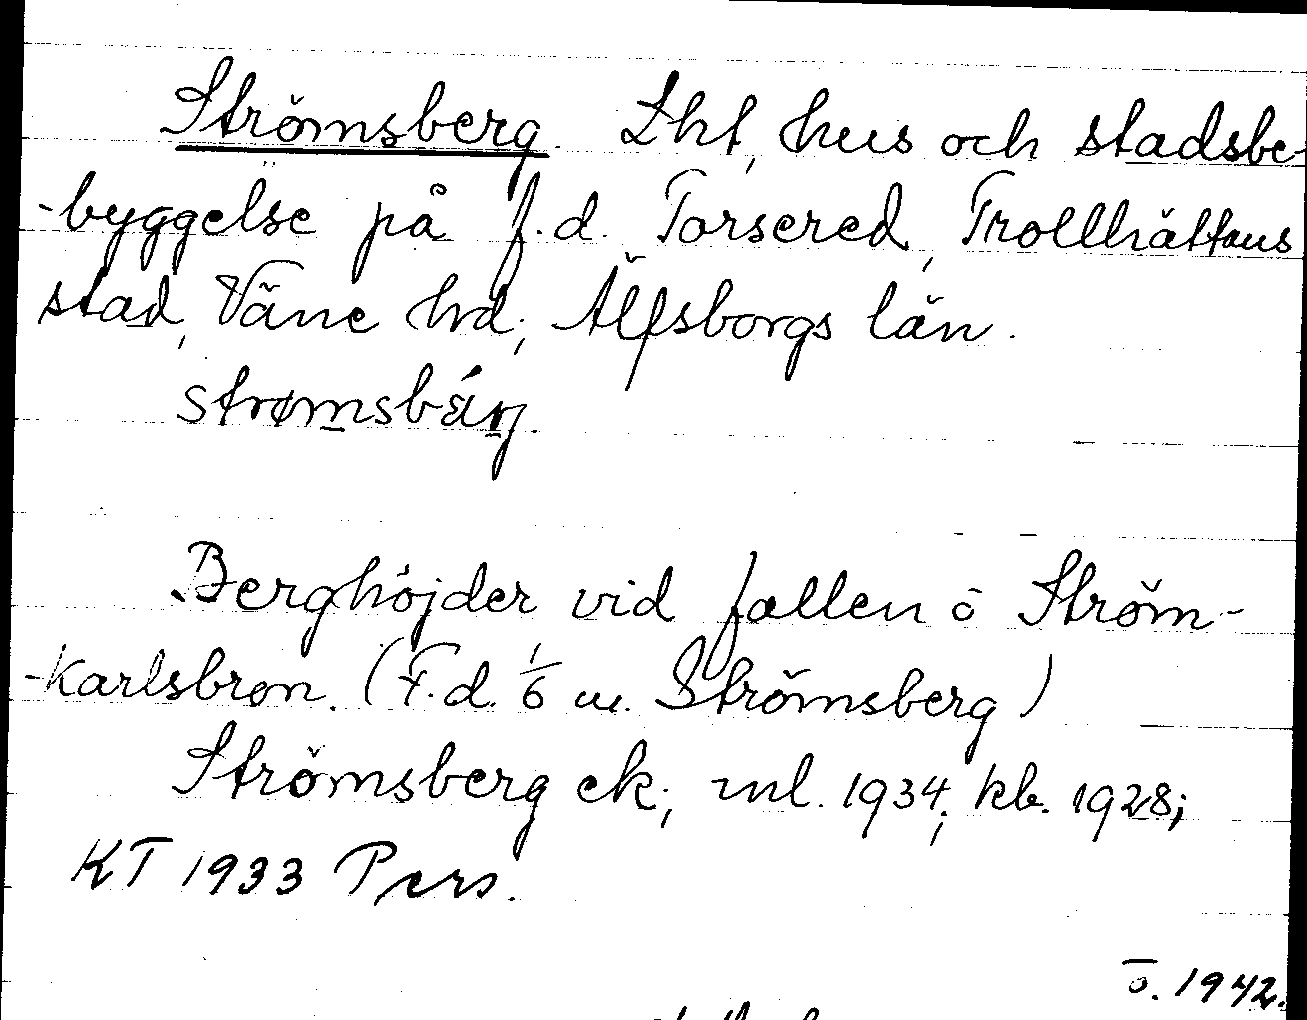 Strömsberg. Lht, hus och stadsbe-
-byggelse på f.d. Torsered, Trollhättans
stad, Väne hd, Älfsborgs län.
strømsbárj.
Berghöjder vid fallen ö Ström-
-karlsbron. (F.d. 1/6 m. Strömsberg)
Strömsberg ek; ml. 1934; kb. 1928;
KT 1933 Pers.
ō. 1942.